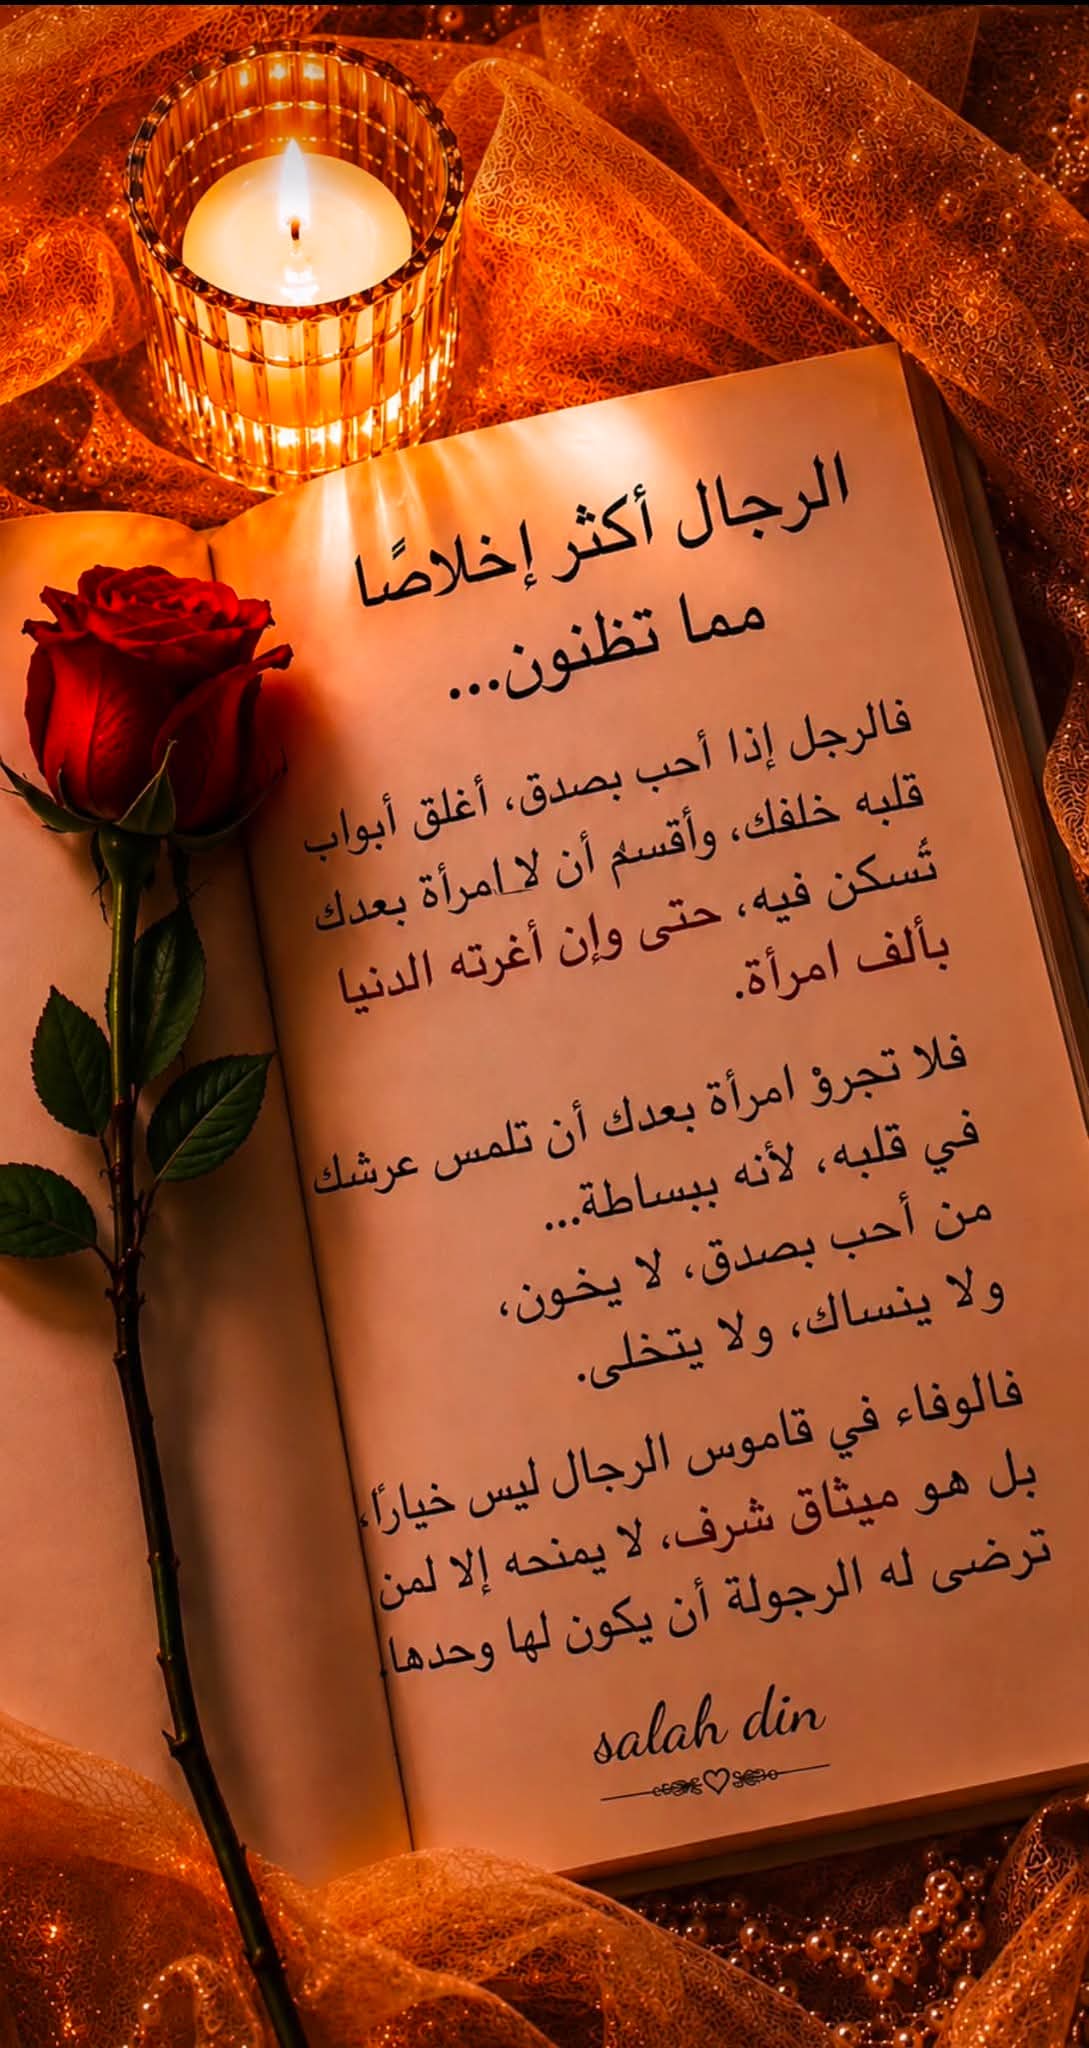 الرجال أكثر إخلاصًا
مما تظنون...
فالرجل إذا أحب بصدق، أغلق أبواب
قلبه خلفك، وأقسمُ أن لا امرأة بعدك
تَسكن فيه، حتى وإن أغرته الدنيا
بألف امرأة.
فلا تجروْ امرأة بعدك أن تلمس عرشك
في قلبه، لأنه ببساطة...
من أحب بصدق، لا يخون،
ولا ينساك، ولا يتخلى.
فالوفاء في قاموس الرجال ليس خيارًا،
بل هو ميثاق شرف، لا يمنحه إلا لمن
ترضى له الرجولة أن يكون لها وحدها.
salah din